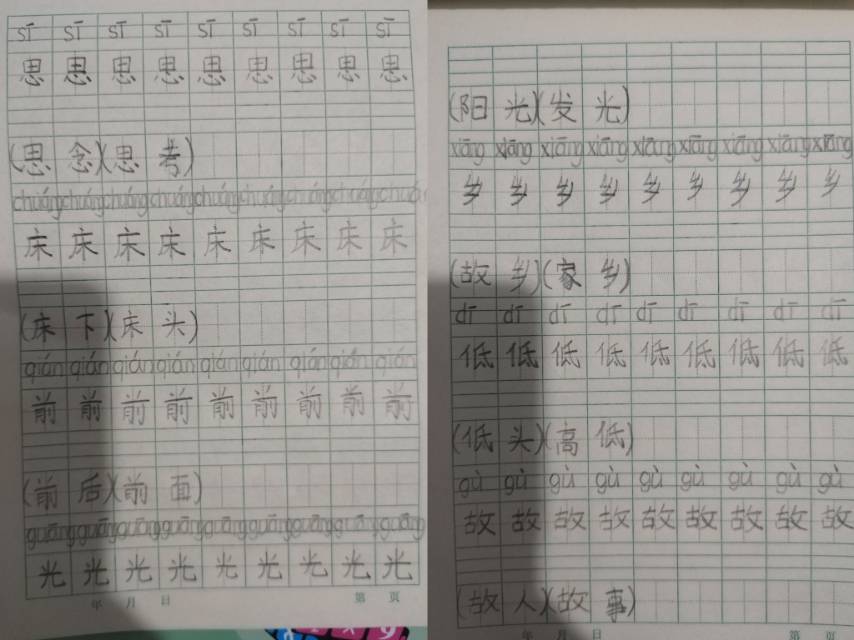 sī sī sī sī sī sī sī sī sī
思 思 思 思 思 思 思 思 思
(思念)(思考)
chuáng chuáng chuáng chuáng chuáng chuáng chuáng chuáng chuáng
床 床 床 床 床 床 床 床 床
(床下)(床头)
qián qián qián qián qián qián qián qián qián
前 前 前 前 前 前 前 前 前
(前后)(前面)
guāng guāng guāng guāng guāng guāng guāng guāng guāng
光 光 光 光 光 光 光 光 光
年 月 日 第 页
(阳光)(发光)
xiāng xiāng xiāng xiāng xiāng xiāng xiāng xiāng xiāng
乡 乡 乡 乡 乡 乡 乡 乡 乡
(故乡)(家乡)
dī dī dī dī dī dī dī dī
低 低 低 低 低 低 低 低 低
(低头)(高低)
gù gù gù gù gù gù gù gù gù
故 故 故 故 故 故 故 故 故
(故人)(故事)
年 月 日 第 页